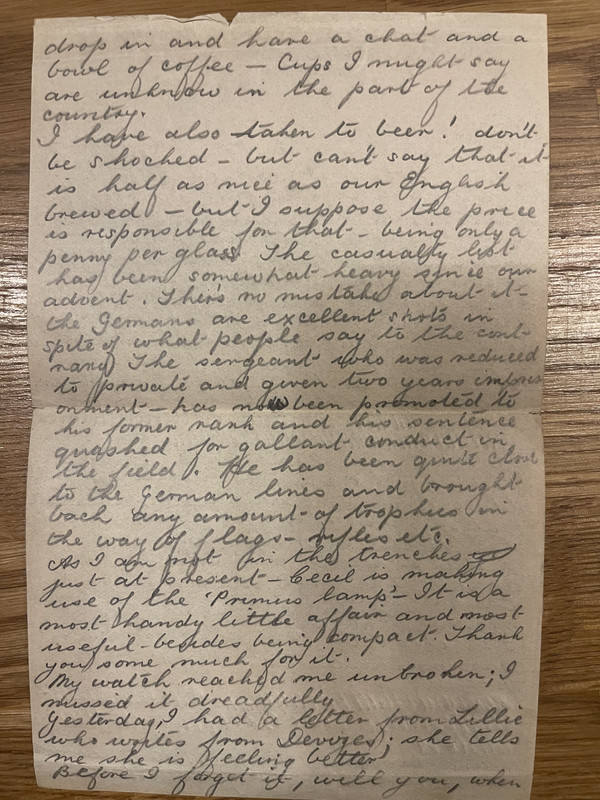 drop in and have a chat and a
bowl of coffee – Cups I might say
are unknow in the part of the
country.
I have also taken to beer! don't
be shocked – but can't say that it
is half as nice as our English
brewed – but I suppose the price
is responsible for that – being only a
penny per glass. The casualty list
has been somewhat heavy since our
advent. Thers no mistake about it –
the Germans are excellent shots in
spite of what people say to the cont-
rary) The sergeant who was reduced
to private and given two years impris
onment – has now been promoted to
his former rank and his sentence
quashed for gallant conduct in
the field. He has been quite close
to the German lines and brought
back any amount of trophies in
the way of flags – rifles etc.
As I am not in the trenches
just at present – Cecil is making
use of the 'Primus lamp' – It is a
most handy little affair and most
useful – besides being compact. Thank
you some much for it.
My watch reached me unbroken; I
missed it dreadfully
Yesterday, I had a letter from Lillie
who writes from Devizes; she tells
me she is feeling better
Before I forget it, will you, when